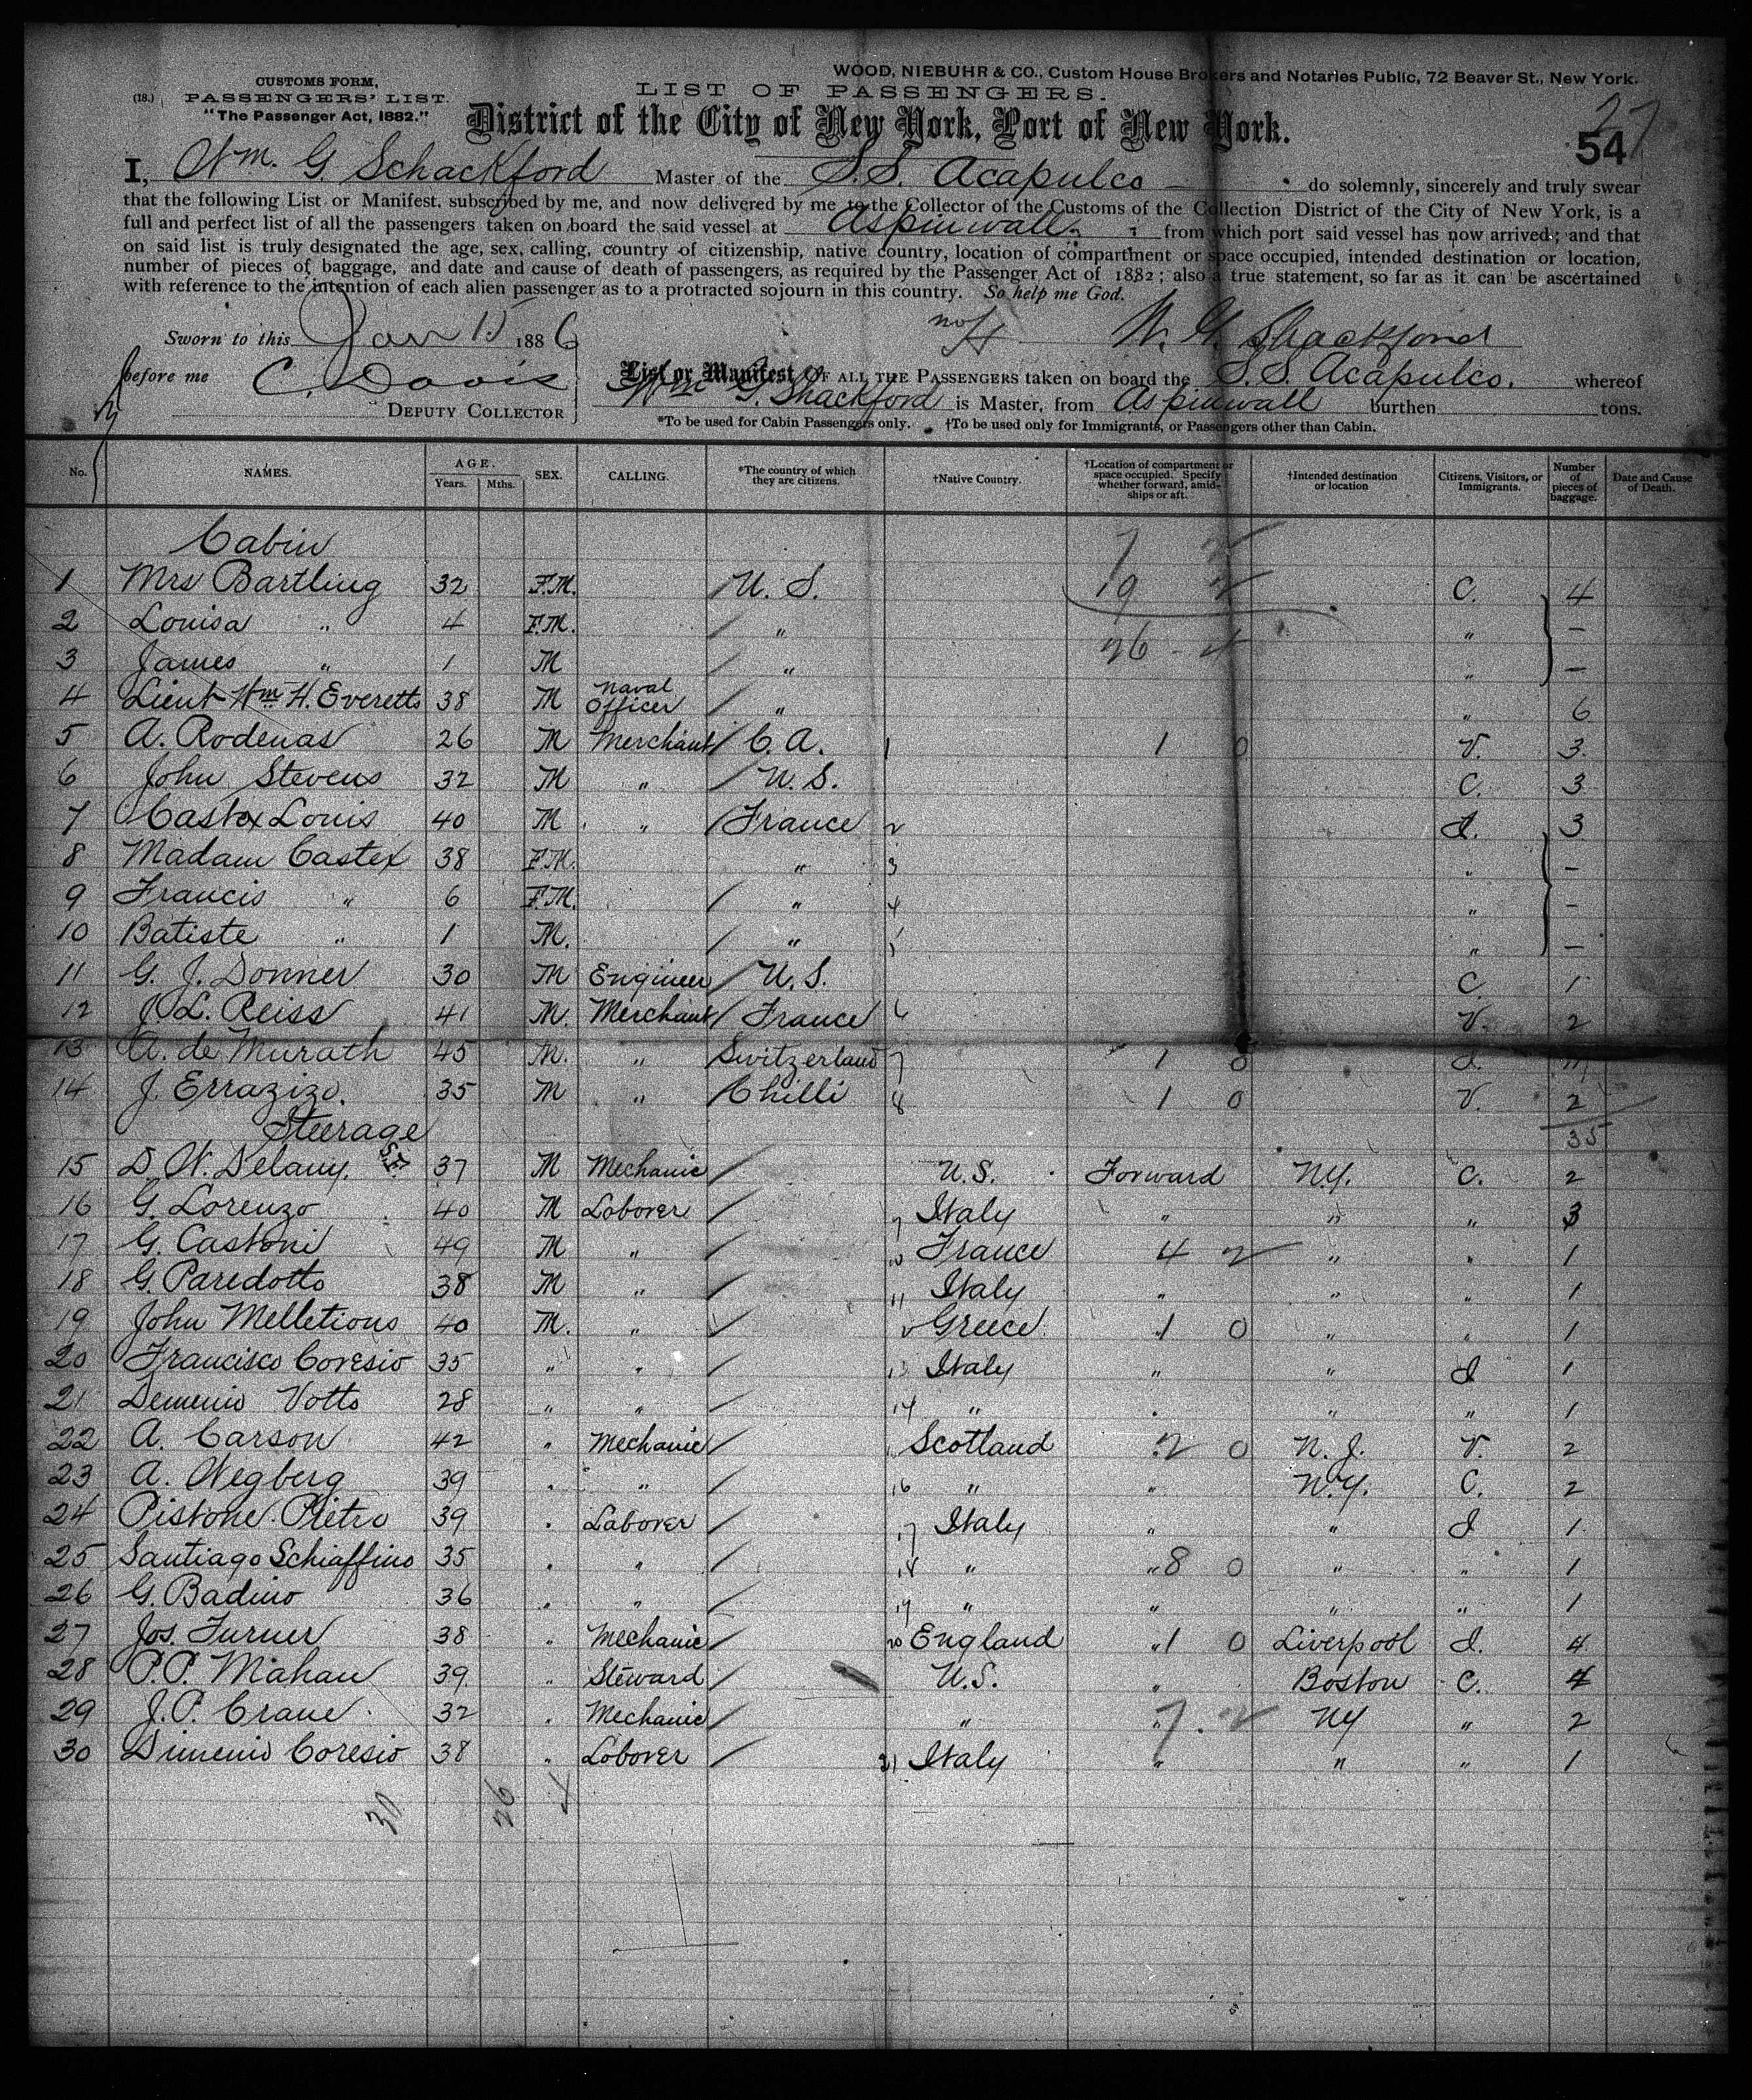 WOOD, NIEBUHR & CO., Custom House Brokers and Notaries Public, 72 Beaver St., New York.
CUSTOMS FORM,
(18.) PASSENGERS' LIST.
"The Passenger Act, 1882."
LIST OF PASSENGERS.
District of the City of New York, Port of New York.
27
54
I, Wm. G. Schackford Master of the S.S. Acapulco do solemnly, sincerely and truly swear
that the following List or Manifest, subscribed by me, and now delivered by me to the Collector of the Customs of the Collection District of the City of New York, is a
full and perfect list of all the passengers taken on board the said vessel at Aspinwall from which port said vessel has now arrived; and that
on said list is truly designated the age, sex, calling, country of citizenship, native country, location of compartment or space occupied, intended destination or location,
number of pieces of baggage, and date and cause of death of passengers, as required by the Passenger Act of 1882; also a true statement, so far as it can be ascertained
with reference to the intention of each alien passenger as to a protracted sojourn in this country. So help me God.
Sworn to this Jan 15 1886 W. G. Shackford
before me C. Davis
DEPUTY COLLECTOR
List or Manifest OF ALL THE PASSENGERS taken on board the S.S. Acapulco. whereof
Wm G. Shackford is Master, from Aspinwall burthen tons.
*To be used for Cabin Passengers only. †To be used only for Immigrants, or Passengers other than Cabin.
No. NAMES. AGE. Years. Mths. SEX. CALLING. *The country of which they are citizens. †Native Country. †Location of compartment or space occupied. Specify whether forward, amidships or aft. †Intended destination or location Citizens, Visitors, or Immigrants. Number of pieces of baggage. Date and Cause of Death.
Cabin 7 2
1 Mrs Bartling 32 F.M. U. S. 19 2 C. 4
2 Louisa " 4 F.M. " " –
26 - 4
3 James " 1 M " " –
4 Lieut Wm H. Everetts 38 M Naval Officer " " 6
5 A. Rodenas 26 M Merchant C. A. 1 1 0 V. 3
6 John Stevens 32 M " U. S. C. 3
7 Castex Louis 40 M " France 2 I. 3
8 Madam Castex 38 F.M. " 3 " –
9 Francis " 6 F.M. " 4 " –
10 Batiste " 1 M. " 5 " –
11 G. J. Donner 30 M Engineer U.S. C. 1
12 J. L. Reiss 41 M. Merchant France 6 V. 2
13 A. de Murath 45 M. " Switzerland 7 1 0 I.
14 J. Errazizo. 35 M " Chilli 8 1 0 V. 2
Steerage 35
15 D. W. Delany. 37 M Mechanic U.S. Forward N.Y. C. 2
16 G. Lorenzo 40 M Laborer 9 Italy " " " 3
17 G. Castoni 49 M " 10 France 4 2 " " 1
18 G. Paredotto 38 M " 11 Italy " " " 1
19 John Melletious 40 M. " Greece 1 0 " " 1
20 Francisco Coresio 35 " " 13 Italy " " I 1
21 Demenio Votto 28 " " 14 " " " " 1
22 A. Carson 42 " Mechanic Scotland 2 0 N.J. V. 2
23 A. Wegberg 39 " " 16 " " N.Y. C. 2
24 Pistone Pietro 39 " Laborer 17 Italy " " I 1
25 Santiago Schiaffino 35 " " 18 " " 8 0 " " 1
26 G. Badino 36 " " 19 " " " " 1
27 Jos. Turner 38 " Mechanic 20 England " 1 0 Liverpool I. 4
28 P.P. Mahan 39 " Steward U.S. " Boston C. 4
29 J.P. Crane 32 " Mechanic " " 7 2 NY " 2
30 Dimenio Coresio 38 " Laborer 21 Italy " " " 1
30 26 4